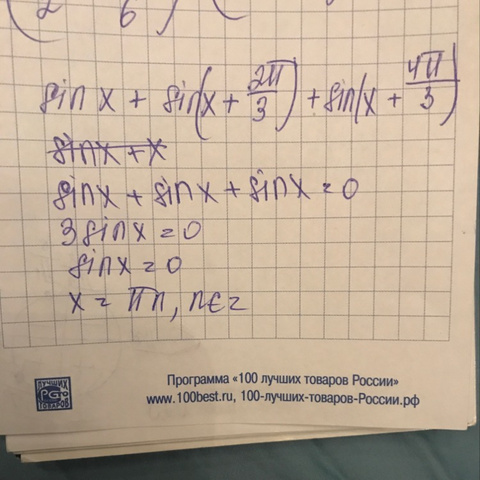 (2 6) (
sin x + sin(x + 2π/3) + sin(x + 4π/3)
sinx + x
sinx + sinx + sinx = 0
3 sinx = 0
sinx = 0
x = πn, n∈z
ЛУЧШИХ
ТОВАРОВ
Программа «100 лучших товаров России»
www.100best.ru, 100-лучших-товаров-России.рф